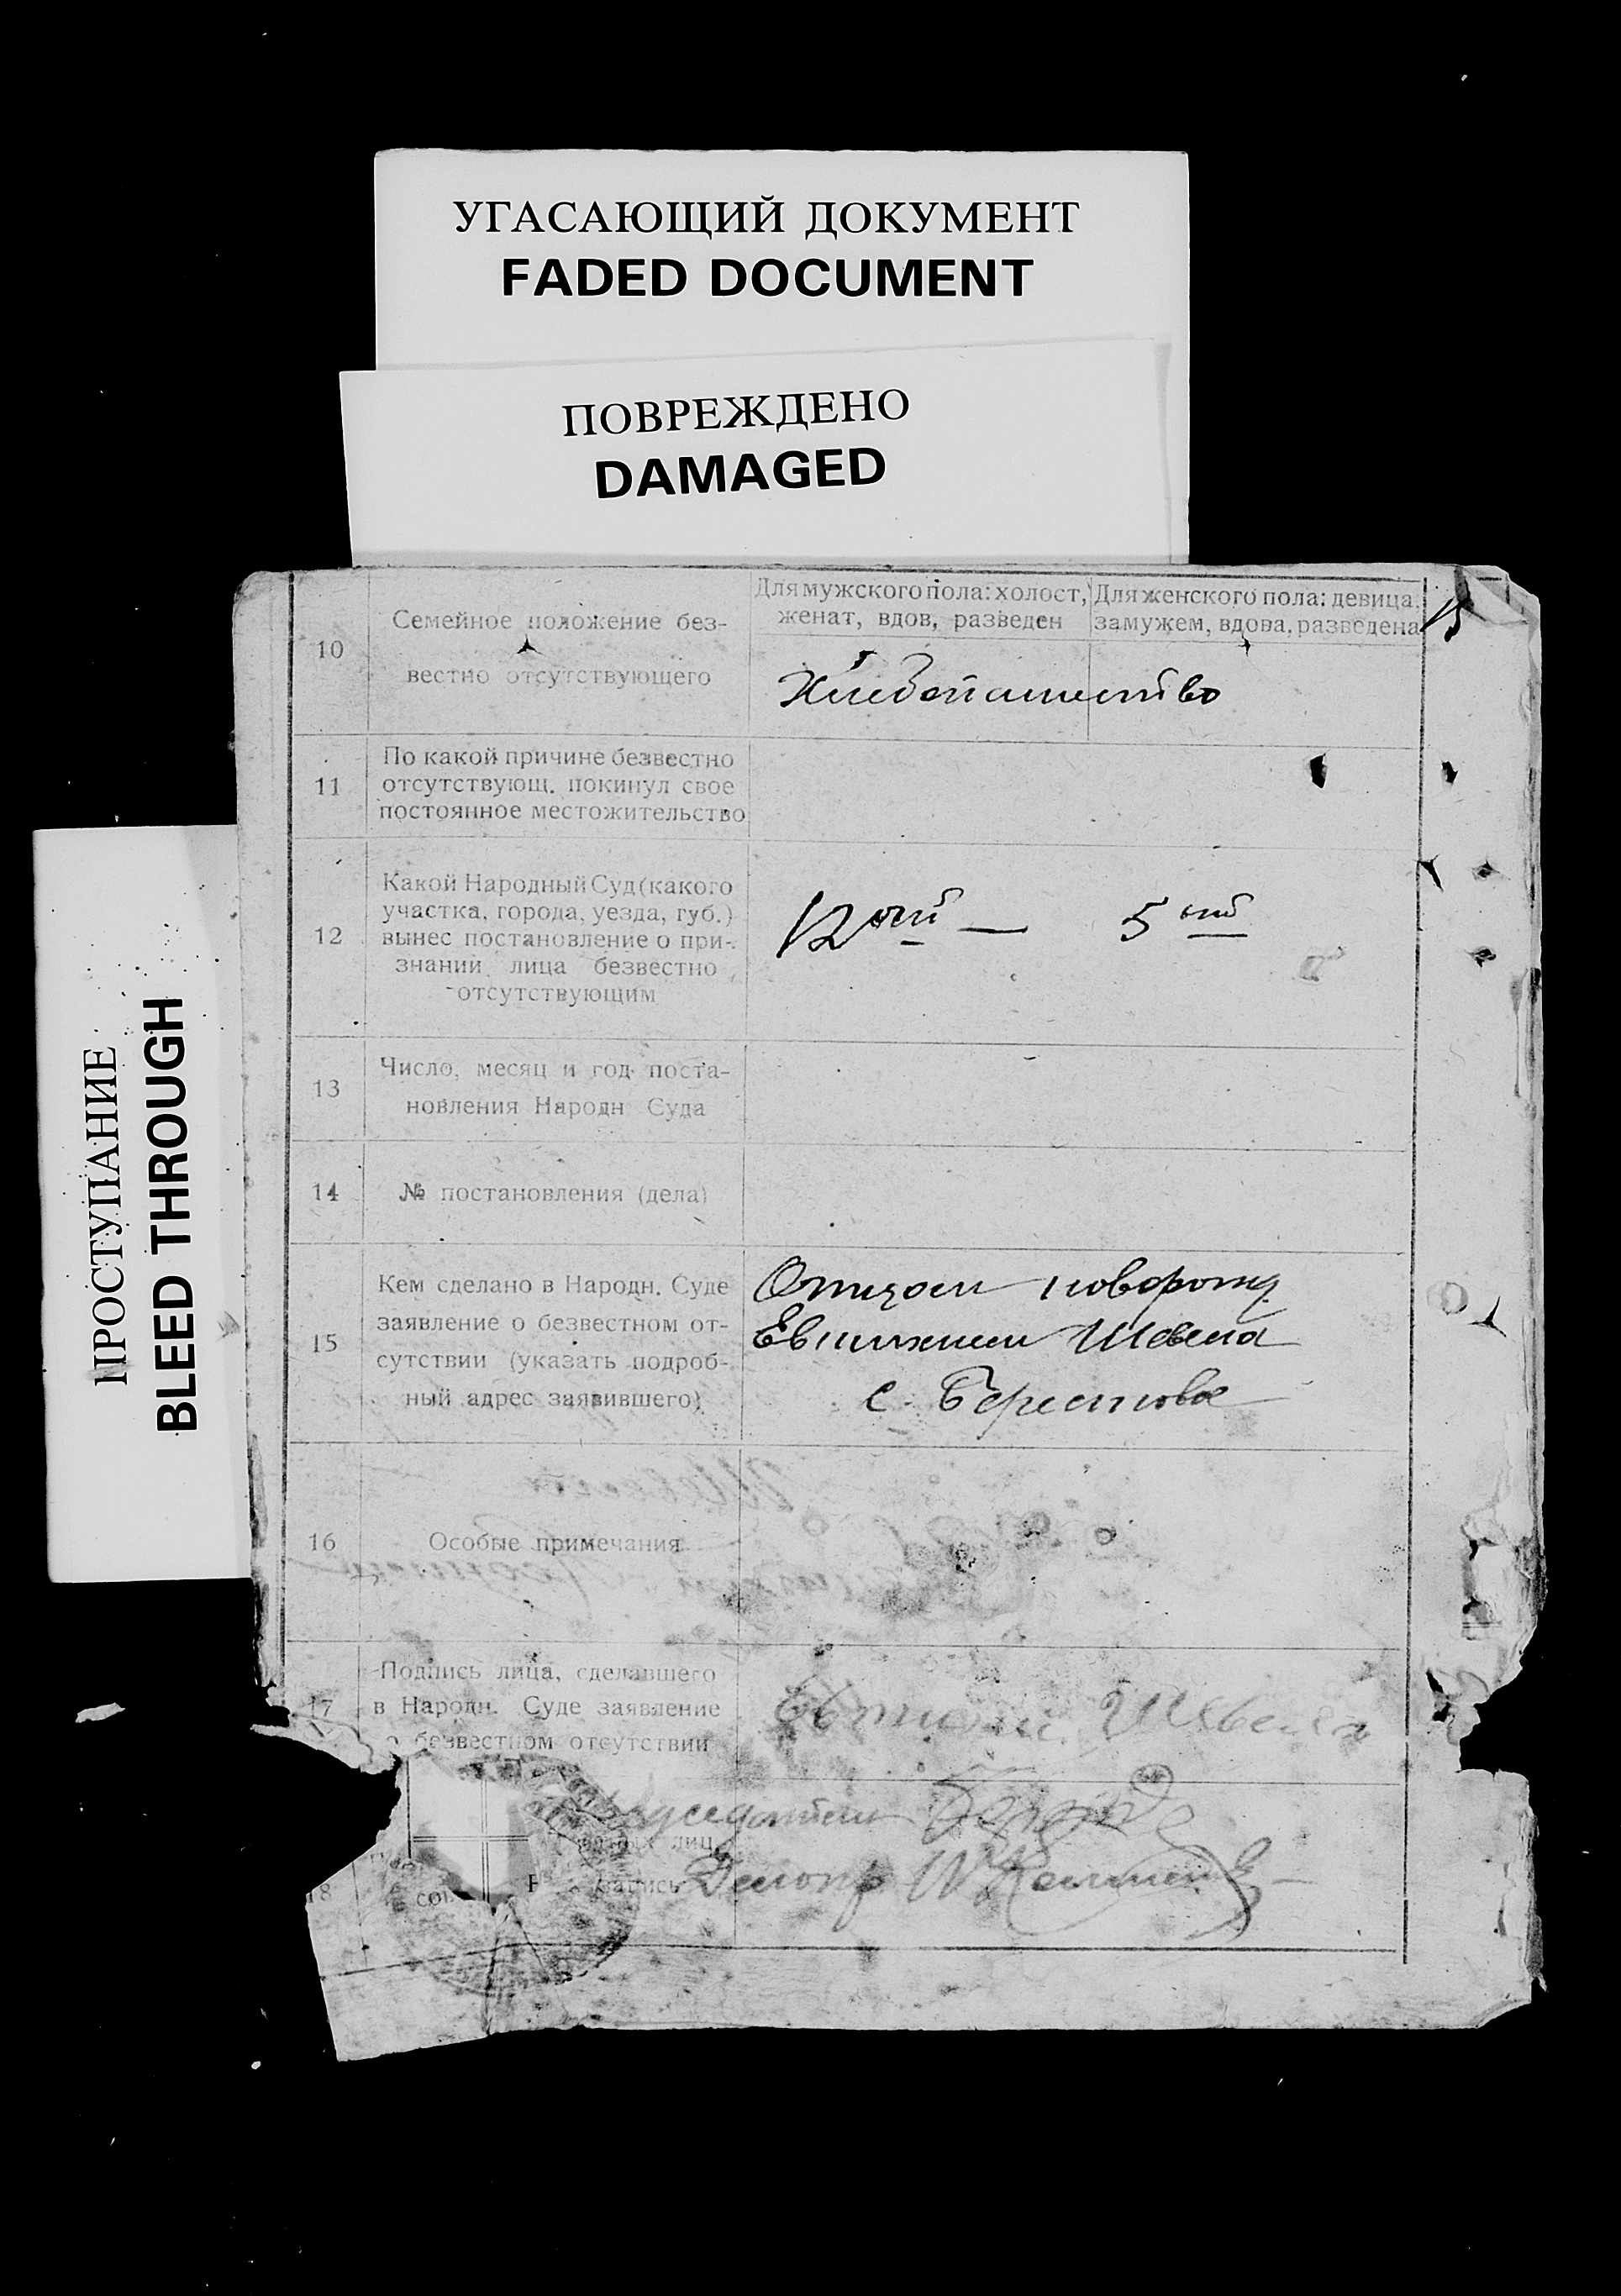 УГАСАЮЩИЙ ДОКУМЕНТ
FADED DOCUMENT
ПОВРЕЖДЕНО
DAMAGED
ПРОСТУПАНИЕ
BLEED THROUGH
10
Семейное положение без-
вестно отсутствующего
Для мужского пола: холост,
женат, вдов, разведен
Для женского пола: девица,
замужем, вдова, разведена
Хлебопашество
11
По какой причине безвестно
отсутствующ. покинул свое
постоянное местожительство
12
Какой Народный Суд (какого
участка, города, уезда, губ.)
вынес постановление о при-
знании лица безвестно
отсутствующим
12 — 5
13
Число, месяц и год поста-
новления Народн Суда
14
№ постановления (дела)
15
Кем сделано в Народн. Суде
заявление о безвестном от-
сутствии (указать подроб-
ный адрес заявившего)
Отцом новорожд.
Евтихием Шевела
с. Берестове
16
Особые примечания
17
Подпись лица, сделавшего
в Народн. Суде заявление
о безвестном отсутствии
Шевела
18
лиц
Делопр